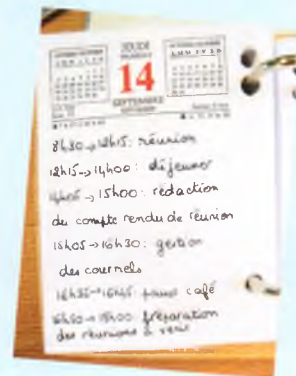 JEUDI
14
SEPTEMBRE
8h30 → 12h15 : réunion
12h15 → 14h00 : déjeuner
→ 15h00 : rédaction
du compte rendu de réunion
15h05 → 16h30 : gestion
des courriels
16h35 → 16h45 : pause café
16h50 → 18h00 : préparation
des réunions à venir